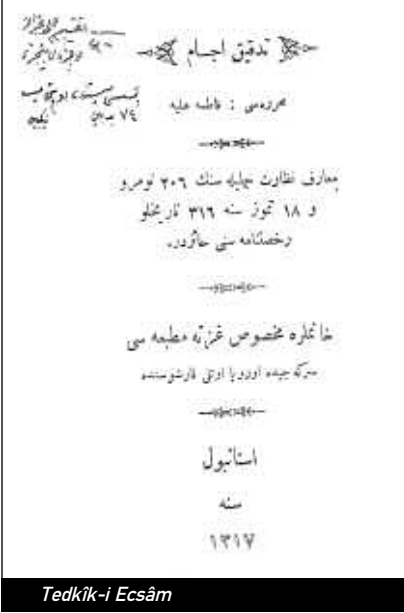 تدقيق اجسام
محرره‌سى : فاطمه عليه
معارف نظارت جليله سنك ٢٠٦ نومرو
و ١٨ تموز سنه ٣١٦ تاريخلو
رخصتنامه سنى حائزدر.
خانملره مخصوص غزته مطبعه سى
سركه جيده اوروپا اوتلى قارشوسنده
استانبول
سنه
١٣١٧
Tedkîk-i Ecsâm